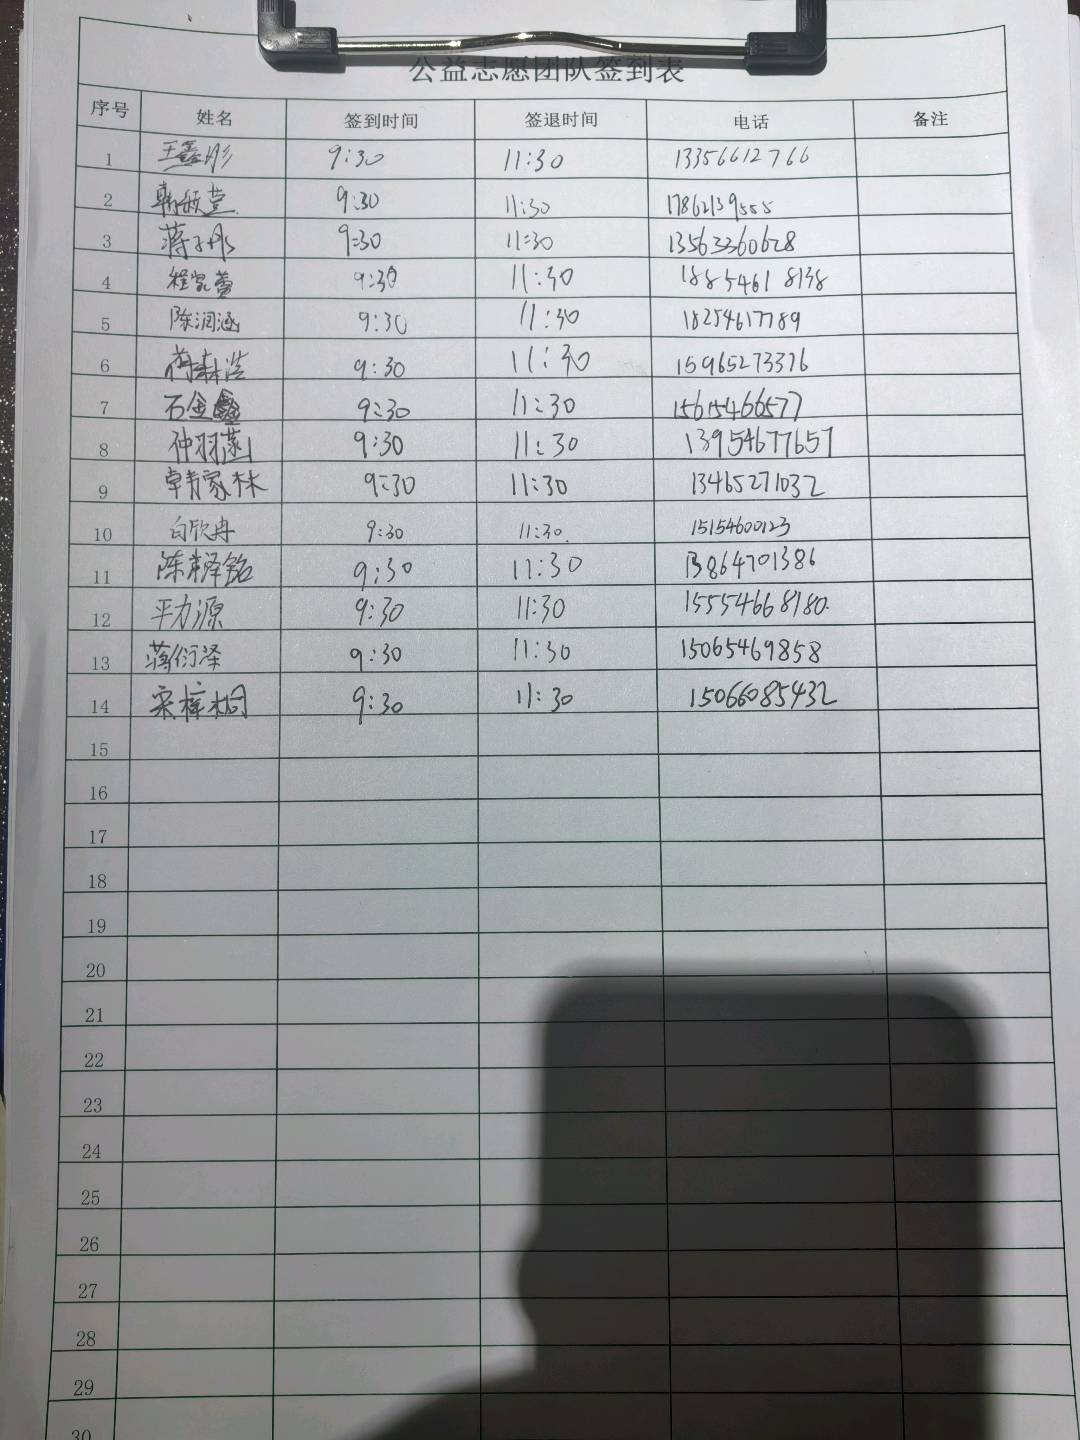 公益志愿团队签到表
序号 姓名 签到时间 签退时间 电话 备注
1 王鑫彤 9:30 11:30 13356612766
2 9:30 11:30 17862139555
3 蒋子彤 9:30 11:30 13563360628
4 程家萱 9:30 11:30 18854618138
5 陈润涵 9:30 11:30 18254617789
6 森浩 9:30 11:30 15965273376
7 石金鑫 9:30 11:30 15615466577
8 仲羽菡 9:30 11:30 13954677657
9 韩家林 9:30 11:30 13465271032
10 白欣冉 9:30 11:30. 15154600123
11 陈泽铭 9:30 11:30 13864701386
12 平力源 9:30 11:30 15554668180.
13 蒋衍泽 9:30 11:30 15065469858
14 宋梓桐 9:30 11:30 15066085432
15
16
17
18
19
20
21
22
23
24
25
26
27
28
29
30